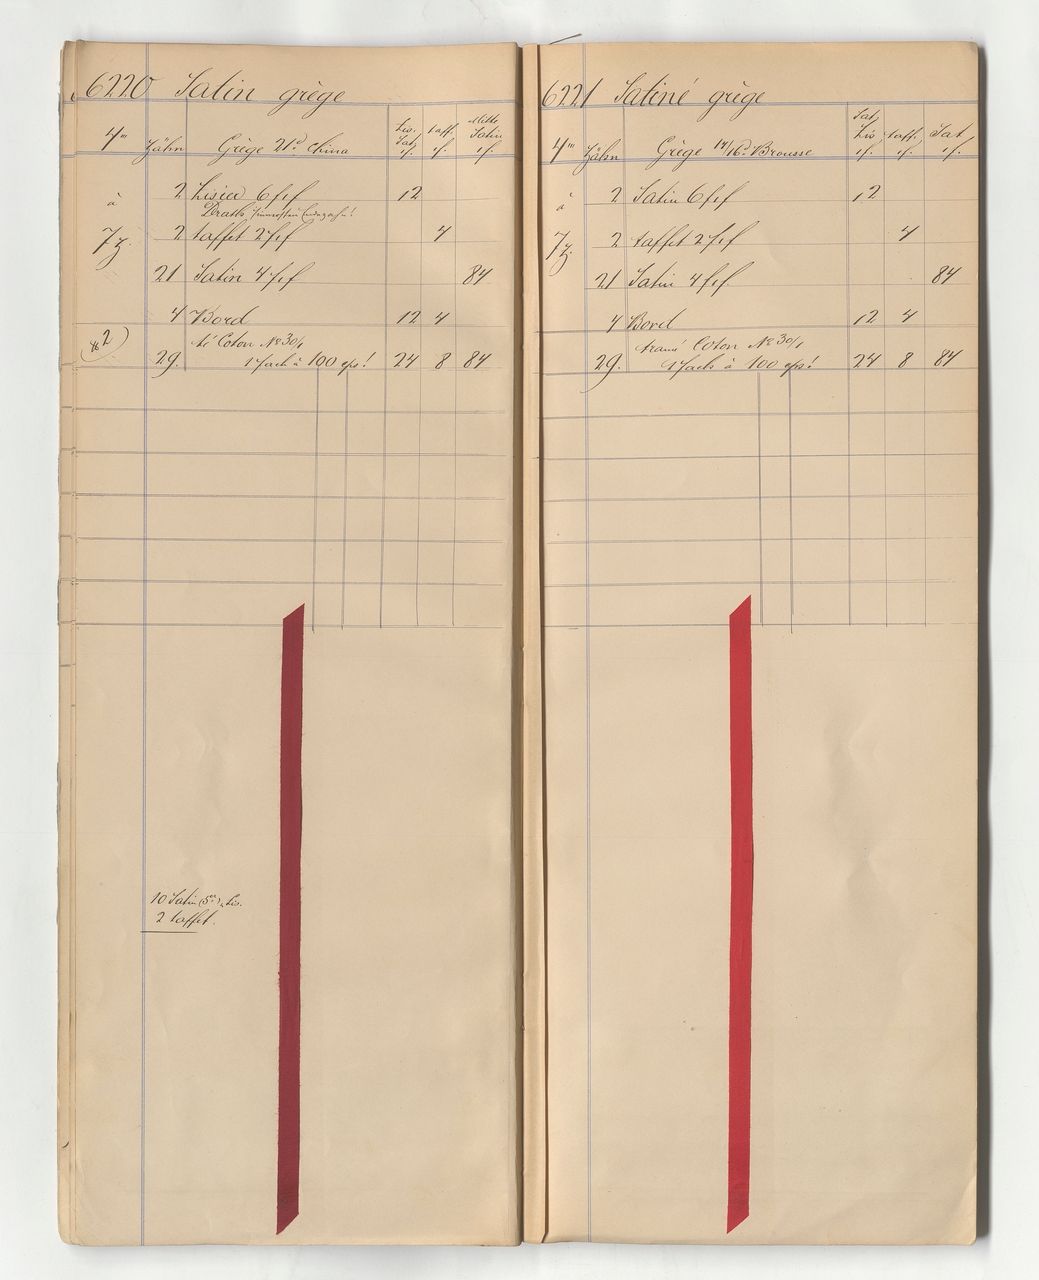 6220 Satin grège
4''' Zähn Grège 21d China Lis. Sat. f. taff. f. Mitte Satin f.
à 2 Lisier 6 f 1 f 12
Draht
7 z. 2 taffet 2 f 1 f 4
21 Satin 4 f 1 f 84
4 Bord 12 4
té Coton No 30/1
29. 1 fach à 100 eps! 24 8 84
10 Satin (5er) u. Lis.
2 taffet.
6221 Satiné grège
4''' Zähn Grège 14/16d Brousse Sat. Lis f. taff. f. Sat f.
à 2 Satin 6 f 1 f 12
7 z. 2 taffet 2 f 1 f 4
21 Satin 4 f 1 f 84
4 Bord 12 4
tramé Coton No 30/1
29. 1 fach à 100 eps! 24 8 84